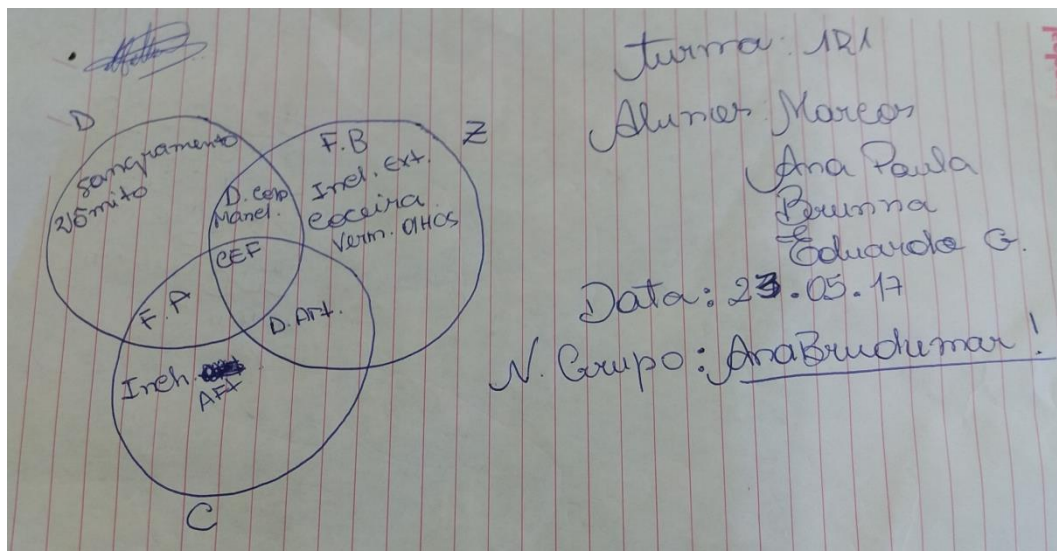 D
Sangramento
Vômito
D. Corp
Manch.
F.B
Inch. Ext.
Coceira
Verm. OlHOS
Z
CEF
F.A
D. Art.
Inch.
Art
C
turma: 121
Alunos: Marcos
Ana Paula
Brunna
Eduardo G.
Data: 23.05.17
N. Grupo: AnaBrudumar!